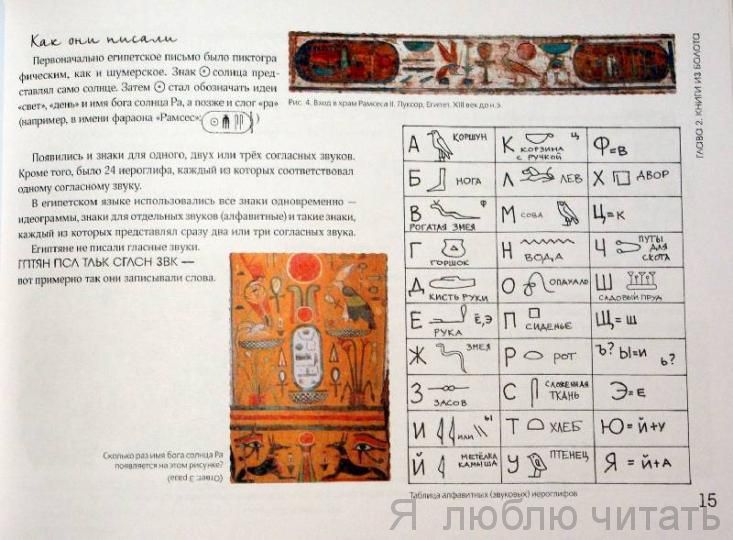 Как они писали
Первоначально египетское письмо было пиктогра
фическим, как и шумерское. Знак солнца пред-
ставлял само солнце. Затем стал обозначать идеи
«свет», «день» и имя бога солнца Ра, а позже и слог «ра»
(например, в имени фараона «Рамсес» )
Рис. 4. Вход в храм Рамсеса II. Луксор, Египет. XIII век до н.э.
Появились и знаки для одного, двух или трёх согласных звуков.
Кроме того, было 24 иероглифа, каждый из которых соответствовал
одному согласному звуку.
В египетском языке использовались все знаки одновременно —
идеограммы, знаки для отдельных звуков (алфавитные) и такие знаки,
каждый из которых представлял сразу два или три согласных звука.
Египтяне не писали гласные звуки.
ГПТЯН ПСЛ ТЛЬК СГЛСН ЗВК —
вот примерно так они записывали слова.
Сколько раз имя бога солнца Ра
появляется на этом рисунке?
(Ответ: 3 раза)
А КОРШУН
К Ц КОРЗИНА С РУЧКОЙ
Ф=В
Б НОГА
Л ЛЕВ
Х ДВОР
В Ф РОГАТАЯ ЗМЕЯ
М СОВА
Ц=К
Г ГОРШОК
Н ВОДА
Ч ПУТЫ ДЛЯ СКОТА
Д КИСТЬ РУКИ
О ОПАХАЛО
Ш САДОВЫЙ ПРУД
Е Ё,Э РУКА
П СИДЕНЬЕ
Щ=Ш
Ж ЗМЕЯ
Р РОТ
Ъ? Ы=И Ь?
З ЗАСОВ
С СЛОЖЕННАЯ ТКАНЬ
Э=Е
И ИЛИ Ы
Т ХЛЕБ
Ю=Й+У
Й МЕТЁЛКА КАМЫША
У ПТЕНЕЦ
Я=Й+А
Таблица алфавитных (звуковых) иероглифов
ГЛАВА 2. КНИГИ ИЗ БОЛОТА
15
Я люблю читать